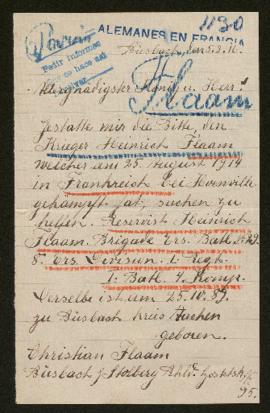 1130
ALEMANES EN FRANCIA
Pedir informes
Büsbach, den 5.3.16.
Allergnädigster König u. Herr!
Flaam
Gestatte mir die Bitte, den
Krieger Heinrich Flaam
welcher am 25. August 1914
in Frankreich bei
gekämpft hat, suchen zu
helfen. Reservist Heinrich
Flaam. Brigade Ers. Batl. № 29
8. Ers. Division, 1. Regt.
1. Batl. 4. Komp.
Derselbe ist am 25.10.89.
zu Büsbach Kreis Aachen
geboren.
Christian Flaam
Büsbach b/Stolberg Rhld.
95.